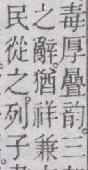 毒厚疊韵三
之辭猶祥兼
民從之列子